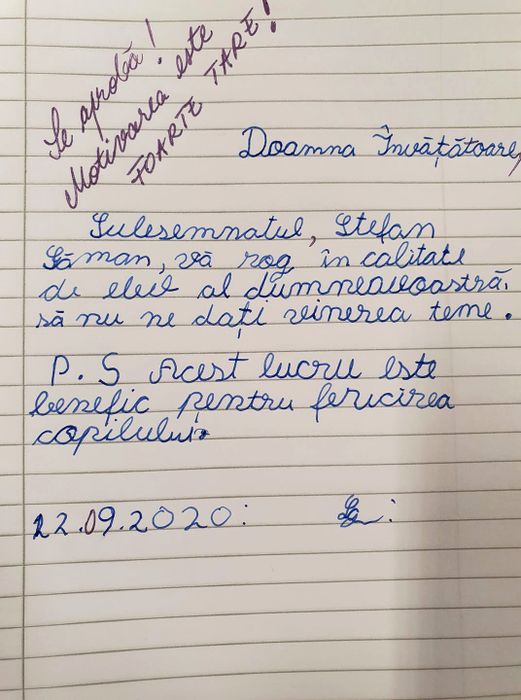 Se aprobă!
Motivarea este
FOARTE TARE!
Doamna Învățătoare,
Subsemnatul, Ștefan
Șăman, vă rog, în calitate
de elev al dumneavoastră,
să nu ne dați vinerea teme.
P.S Acest lucru este
benefic pentru fericirea
copilului.
22.09.2020: